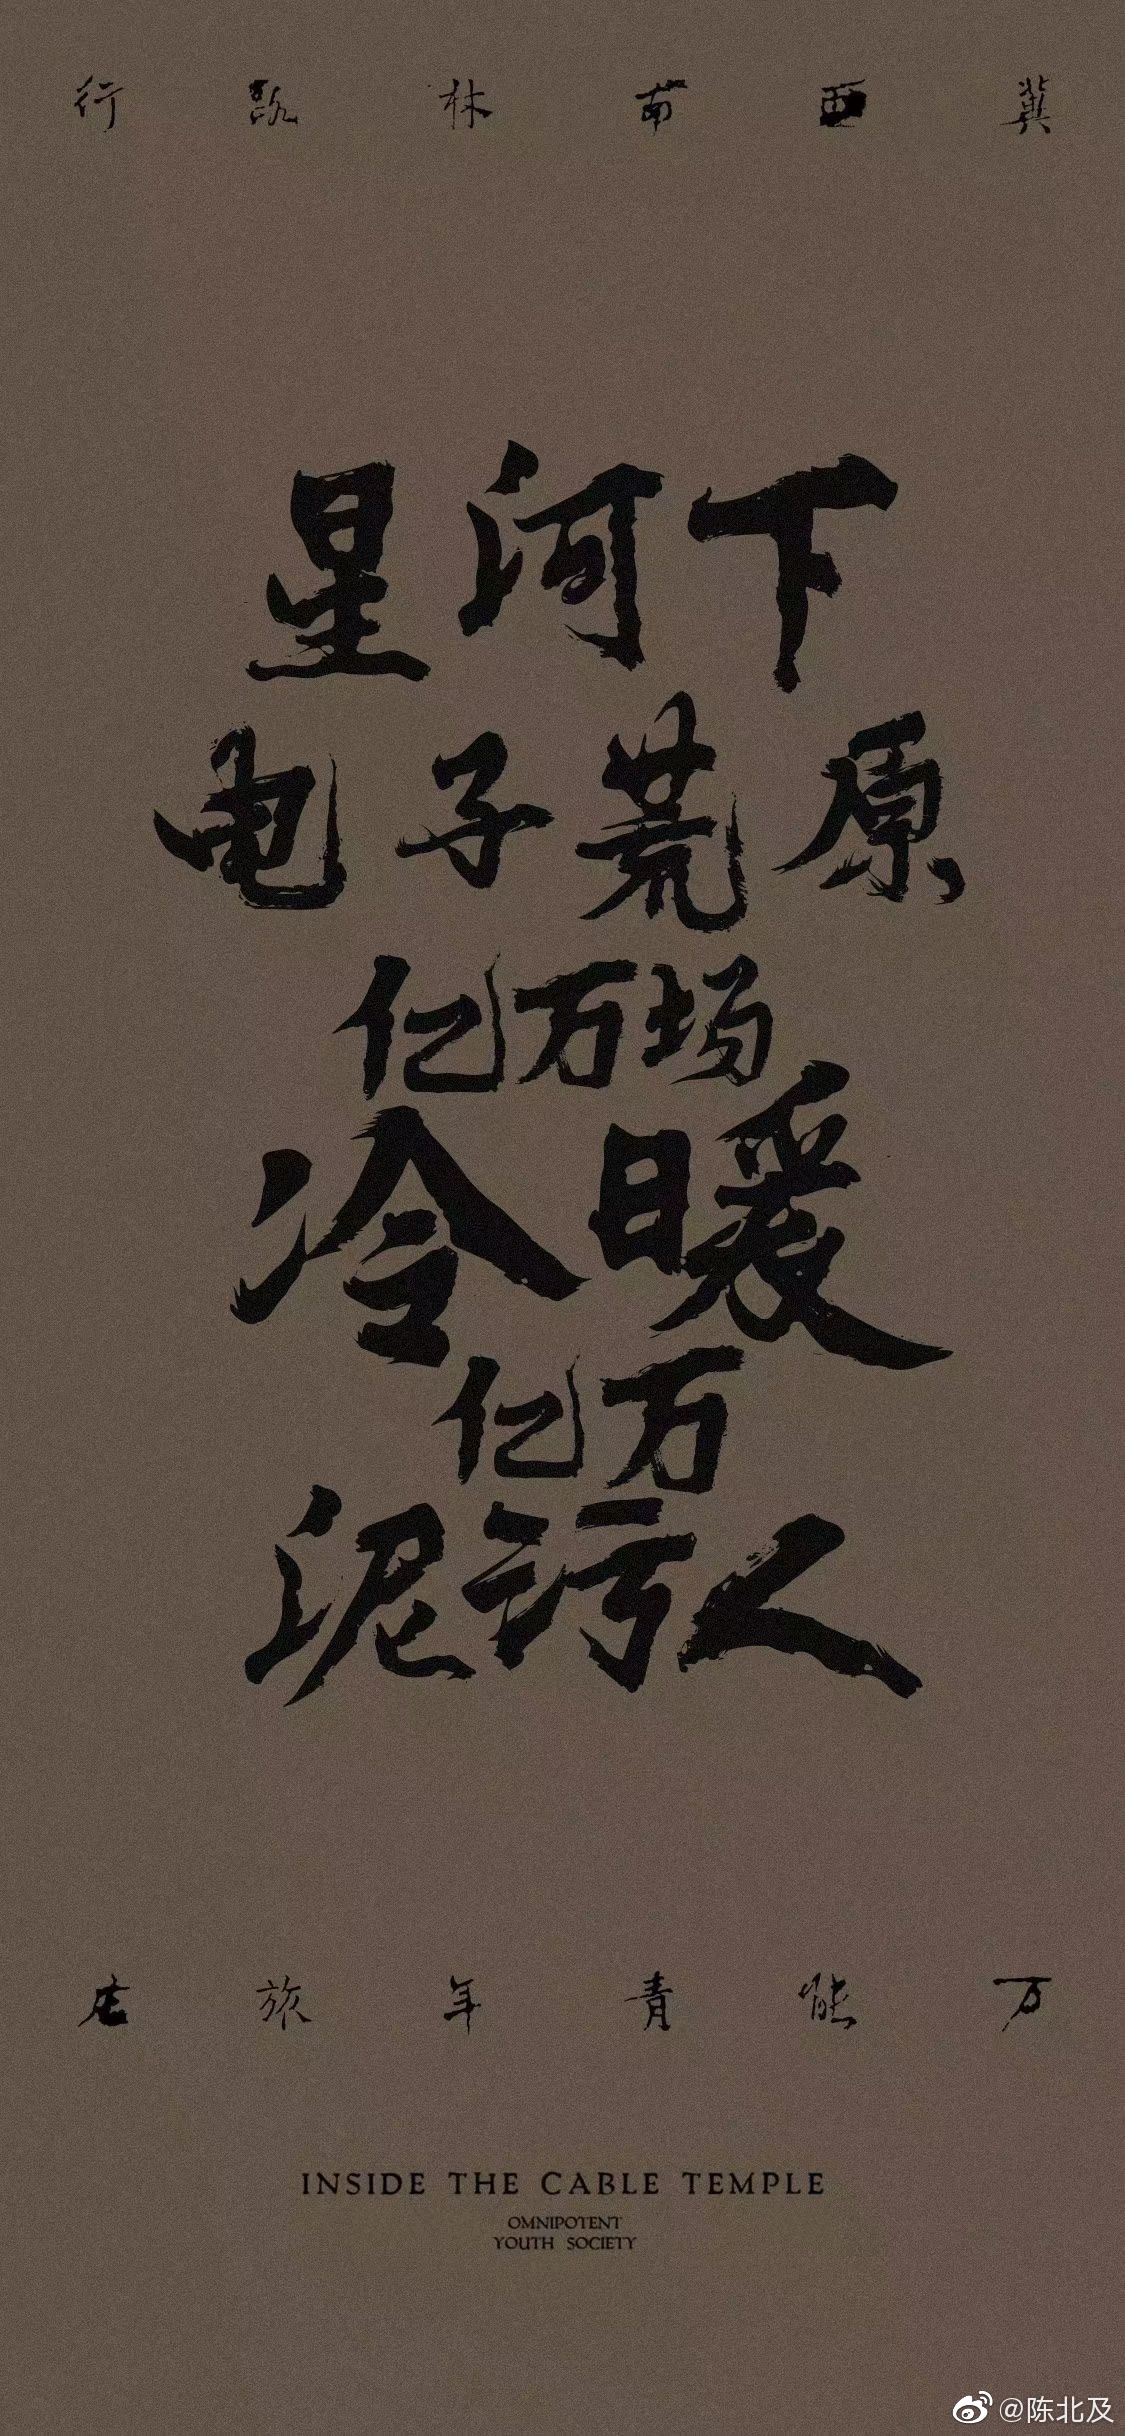 冀西南林路行
星河下
电子荒原
亿万场
冷暖
亿万
泥污人
万能青年旅店
INSIDE THE CABLE TEMPLE
OMNIPOTENT
YOUTH SOCIETY
@陈北及